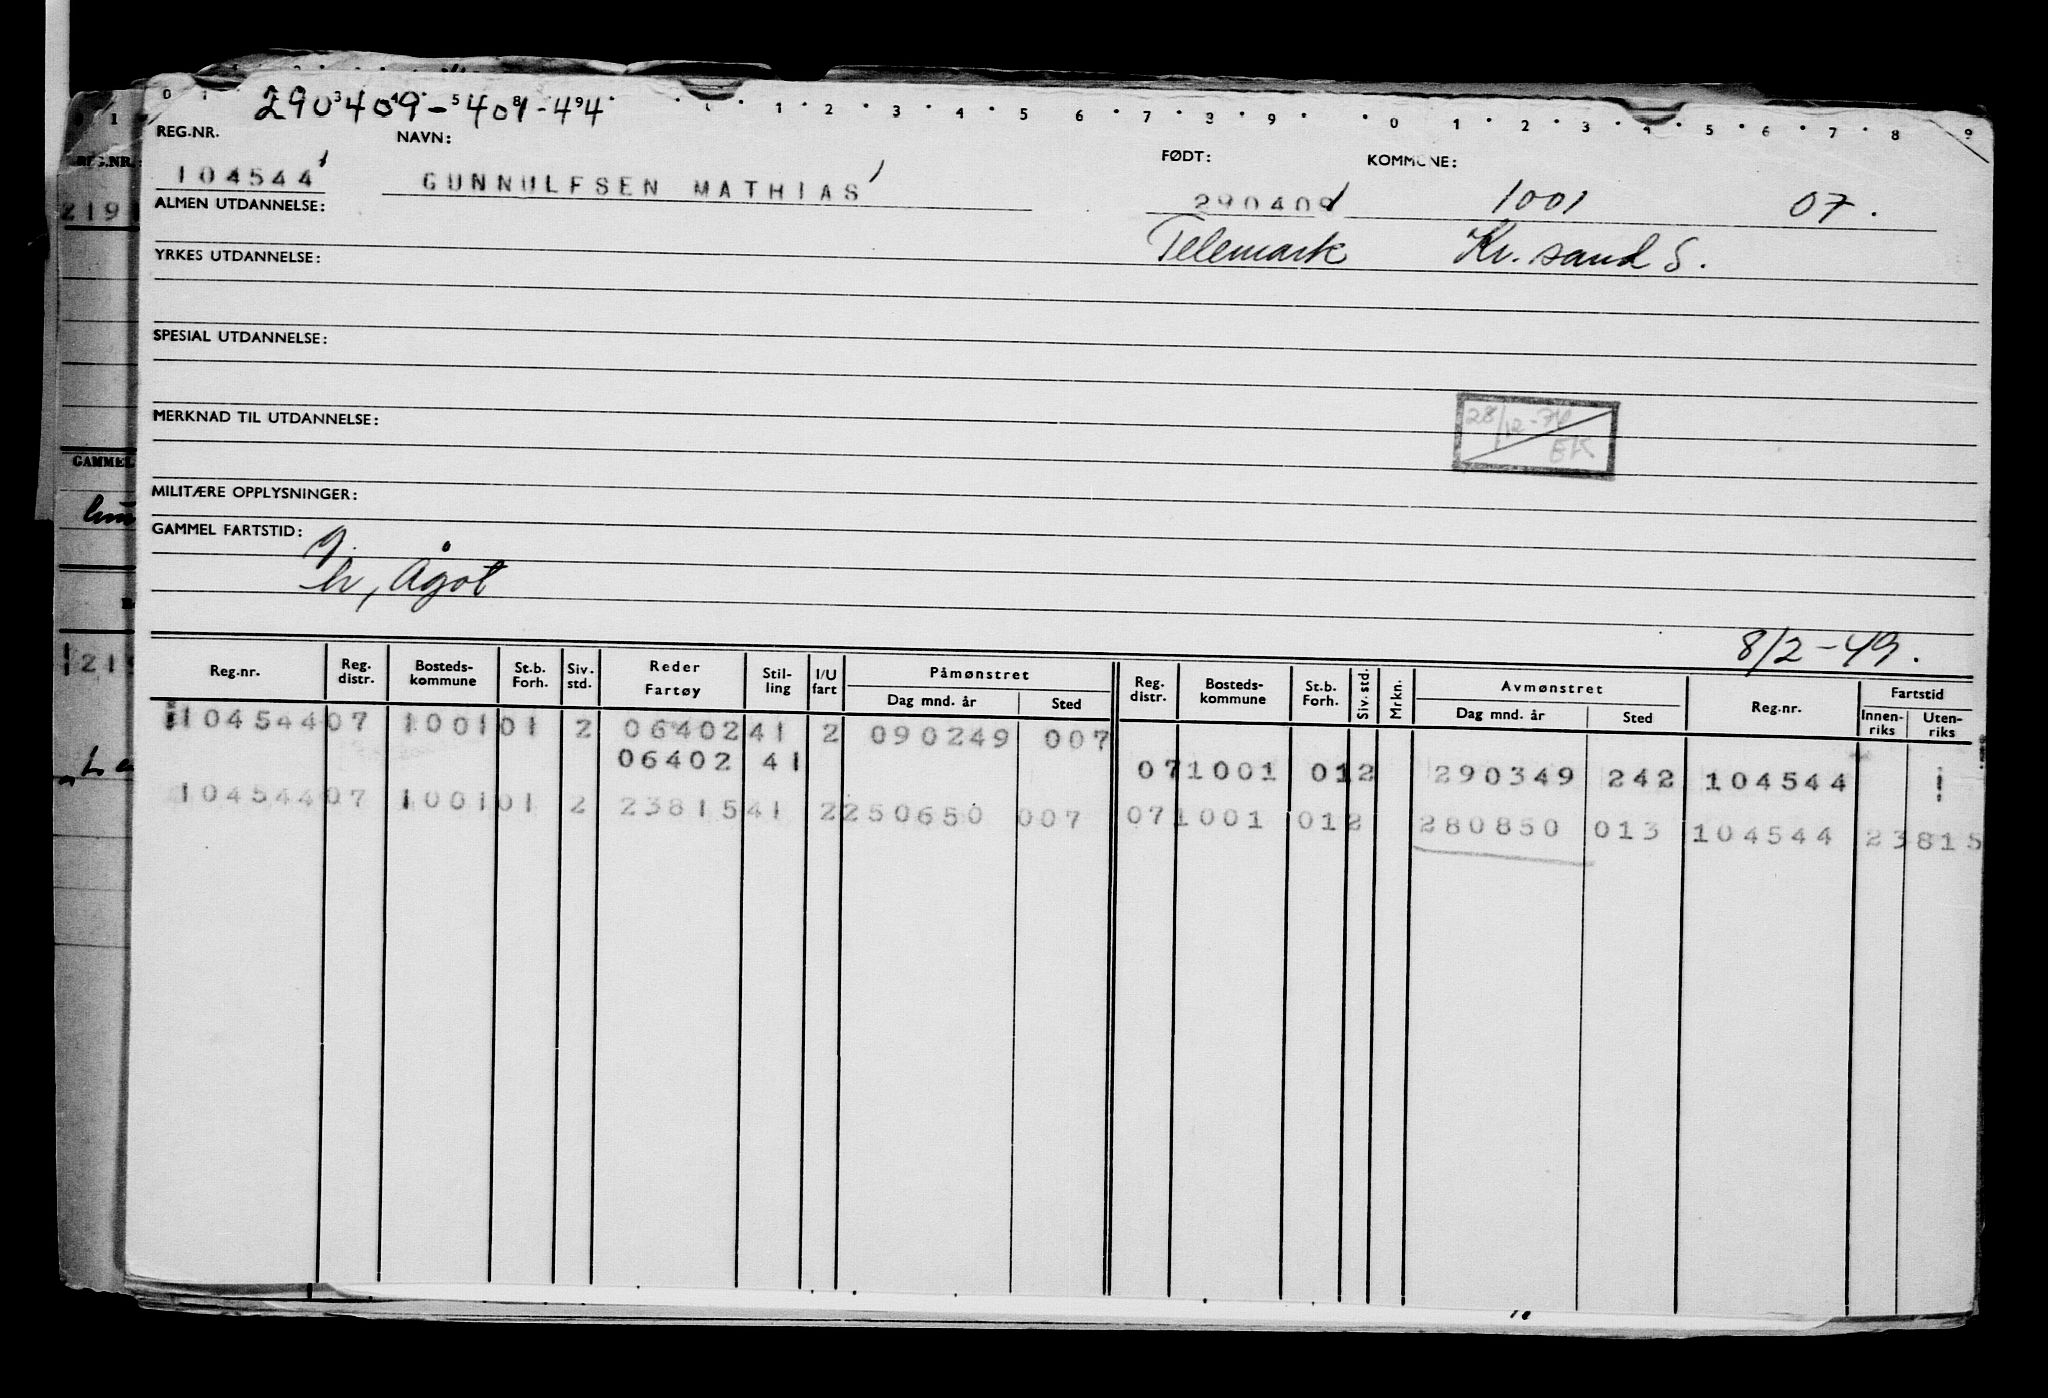 290409-401-44
0 1 3 4 5 8 9 1 2 3 4 5 6 7 8 9 0 1 2 3 4 5 6 7 8 9
REG.NR. NAVN: FØDT: KOMMUNE:
104544 GUNNULFSEN MATHIAS 290409 1001 07.
ALMEN UTDANNELSE:
Telemark Kr. sand S.
YRKES UTDANNELSE:
SPESIAL UTDANNELSE:
28/12-
EK
MERKNAD TIL UTDANNELSE:
MILITÆRE OPPLYSNINGER:
GAMMEL FARTSTID:
g.
h, Ågot
8/2-49.
Reg.nr. Reg. distr. Bosteds-kommune St.b. Forh. Siv. std. Reder Fartøy Stil-ling I/U fart Påmønstret Dag mnd. år Sted Reg. distr. Bosteds-kommune St.b. Forh. Siv. std. Mrkn. Avmønstret Dag mnd. år Sted Reg.nr. Fartstid Innen-riks Uten-riks
104544 07 1001 01 2 06402 41 2 090249 007
06402 41 07 1001 01 2 290349 242 104544 1
104544 07 1001 01 2 23815 41 2 250650 007 07 1001 01 2 280850 013 104544 23815
REG.NR.
219
GAMMEL
219